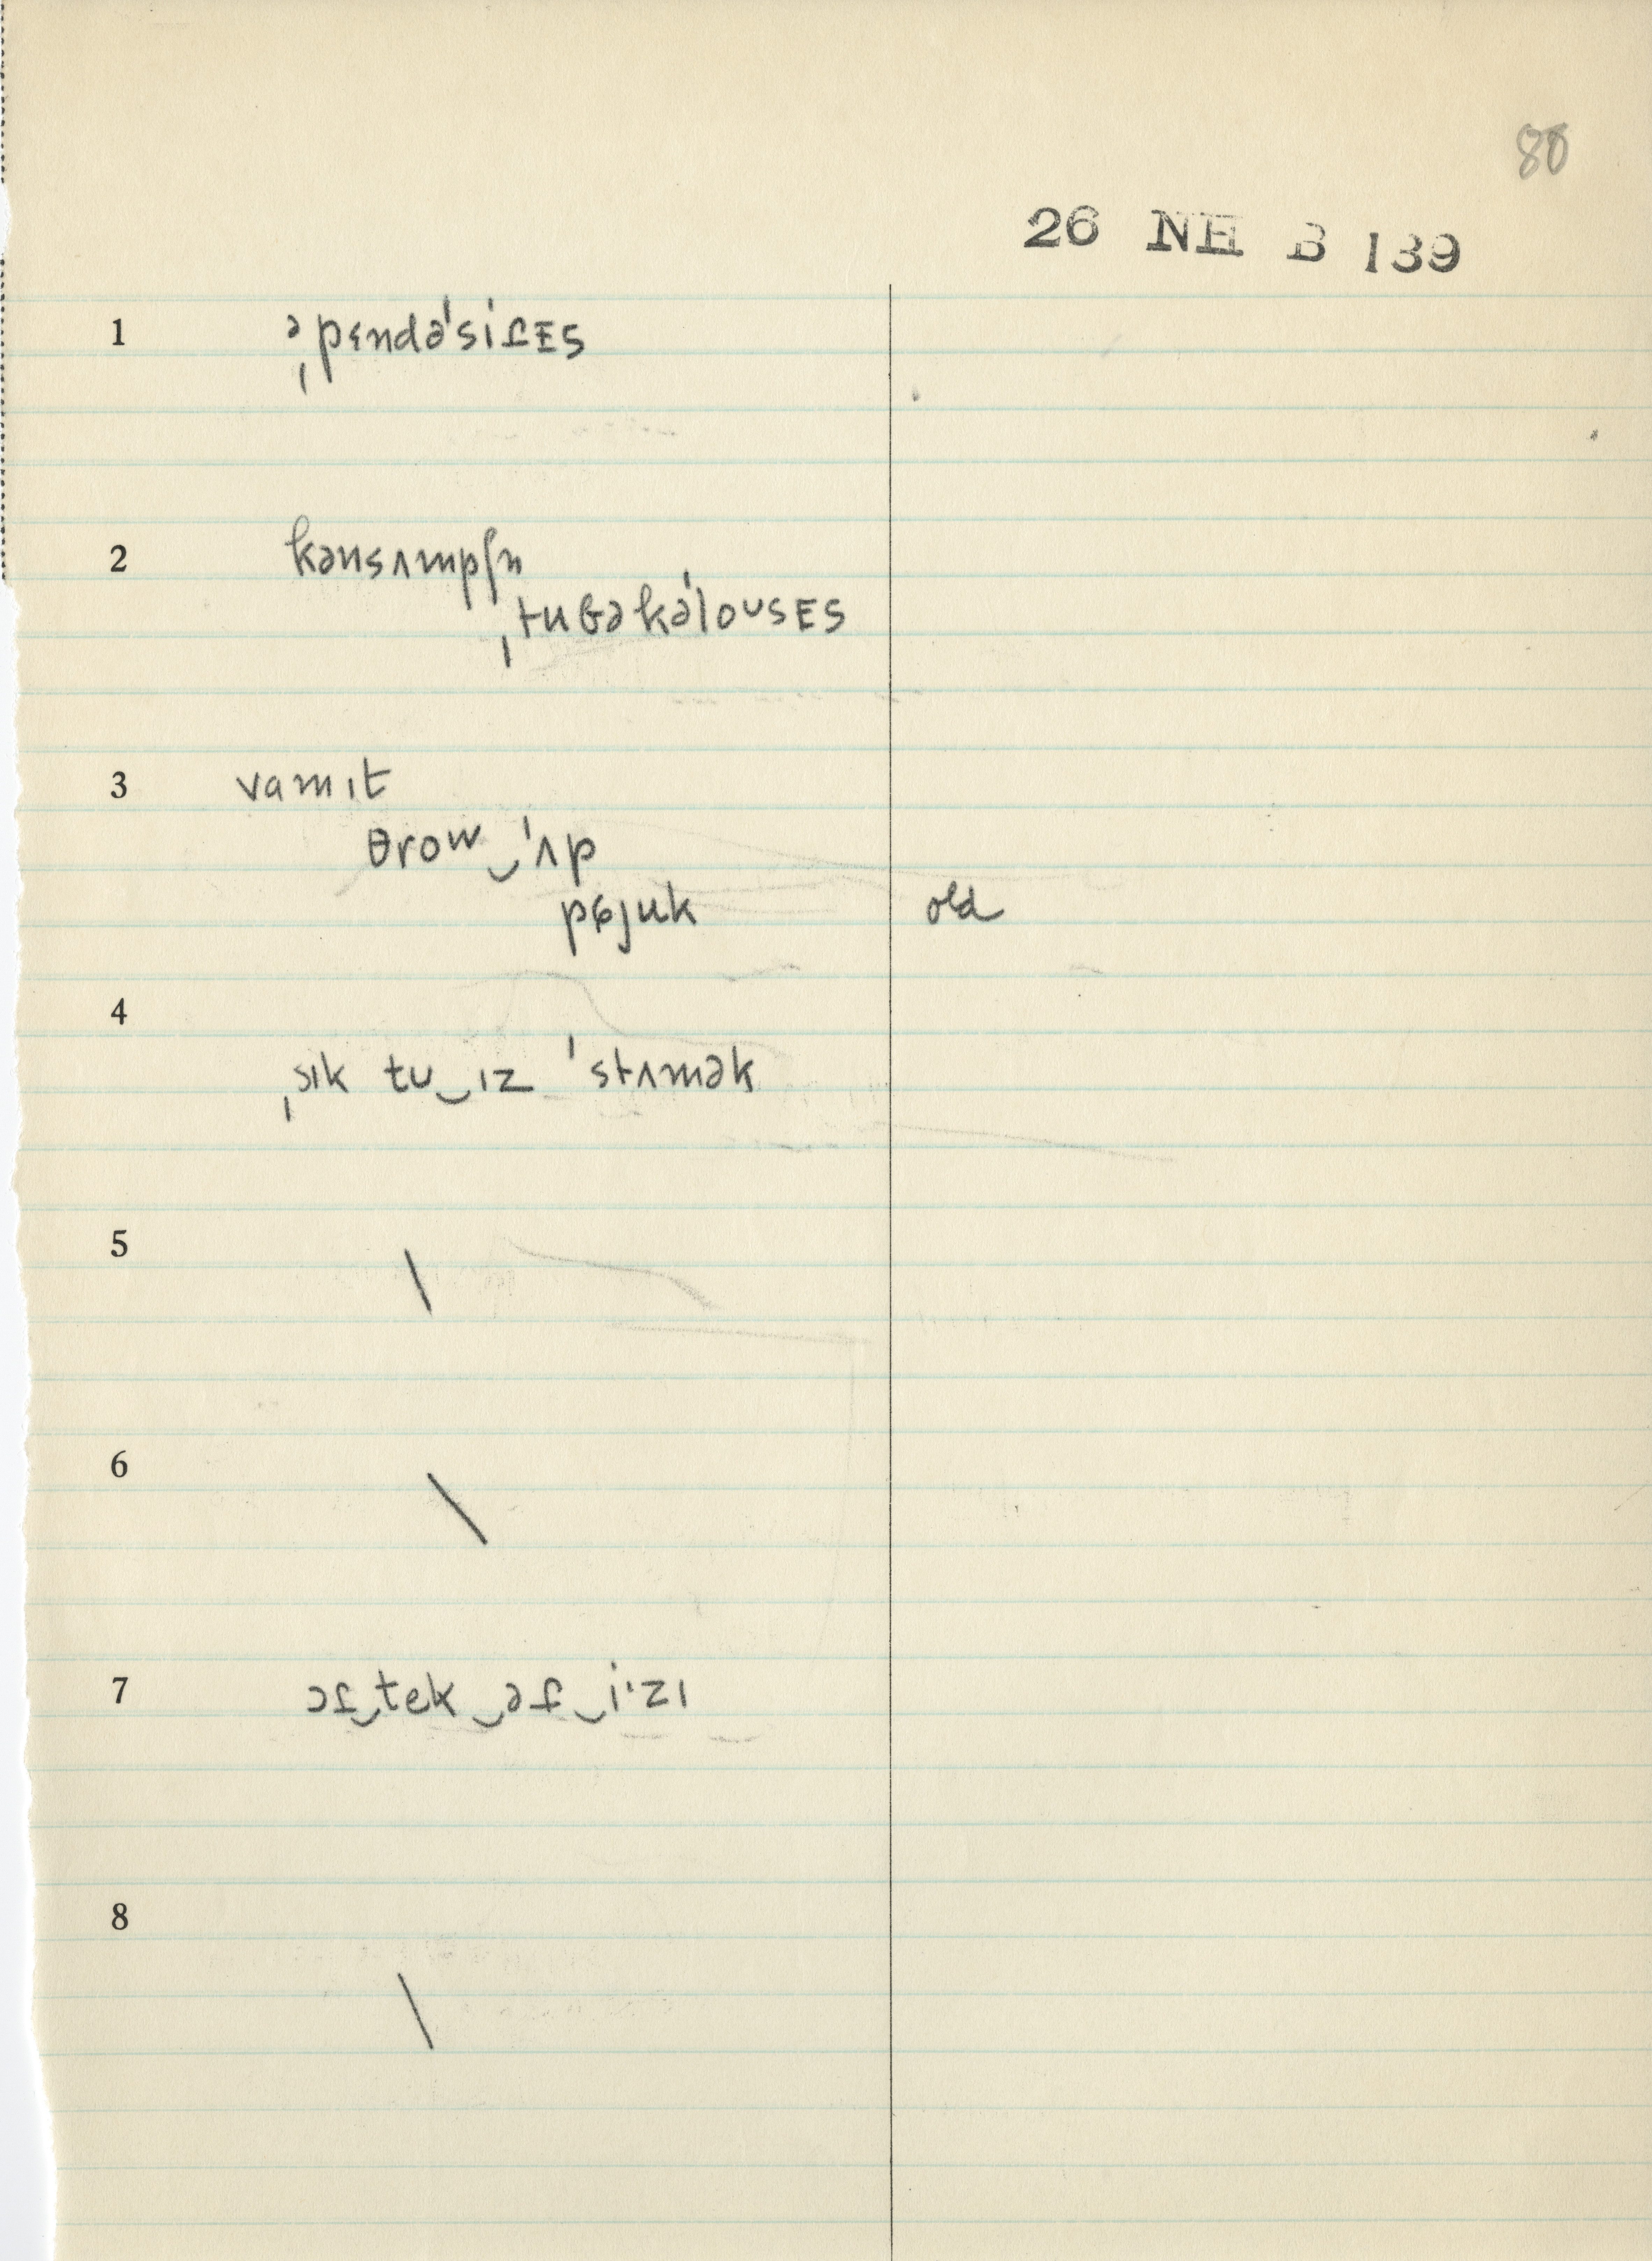 80
26 NH B 139
1 əˌpɛndəˈsifᴇs
2 kənsʌmpʃn
ˌtubəkəˈloʊsᴇs
3 vamɪt
θroʷ‿ˈʌp
pɞjuk old
4
ˌsɪk tʊ‿ɪz ˈstʌmək
5 \
6 \
7 əf‿tek‿əf‿i·zɪ
8
\